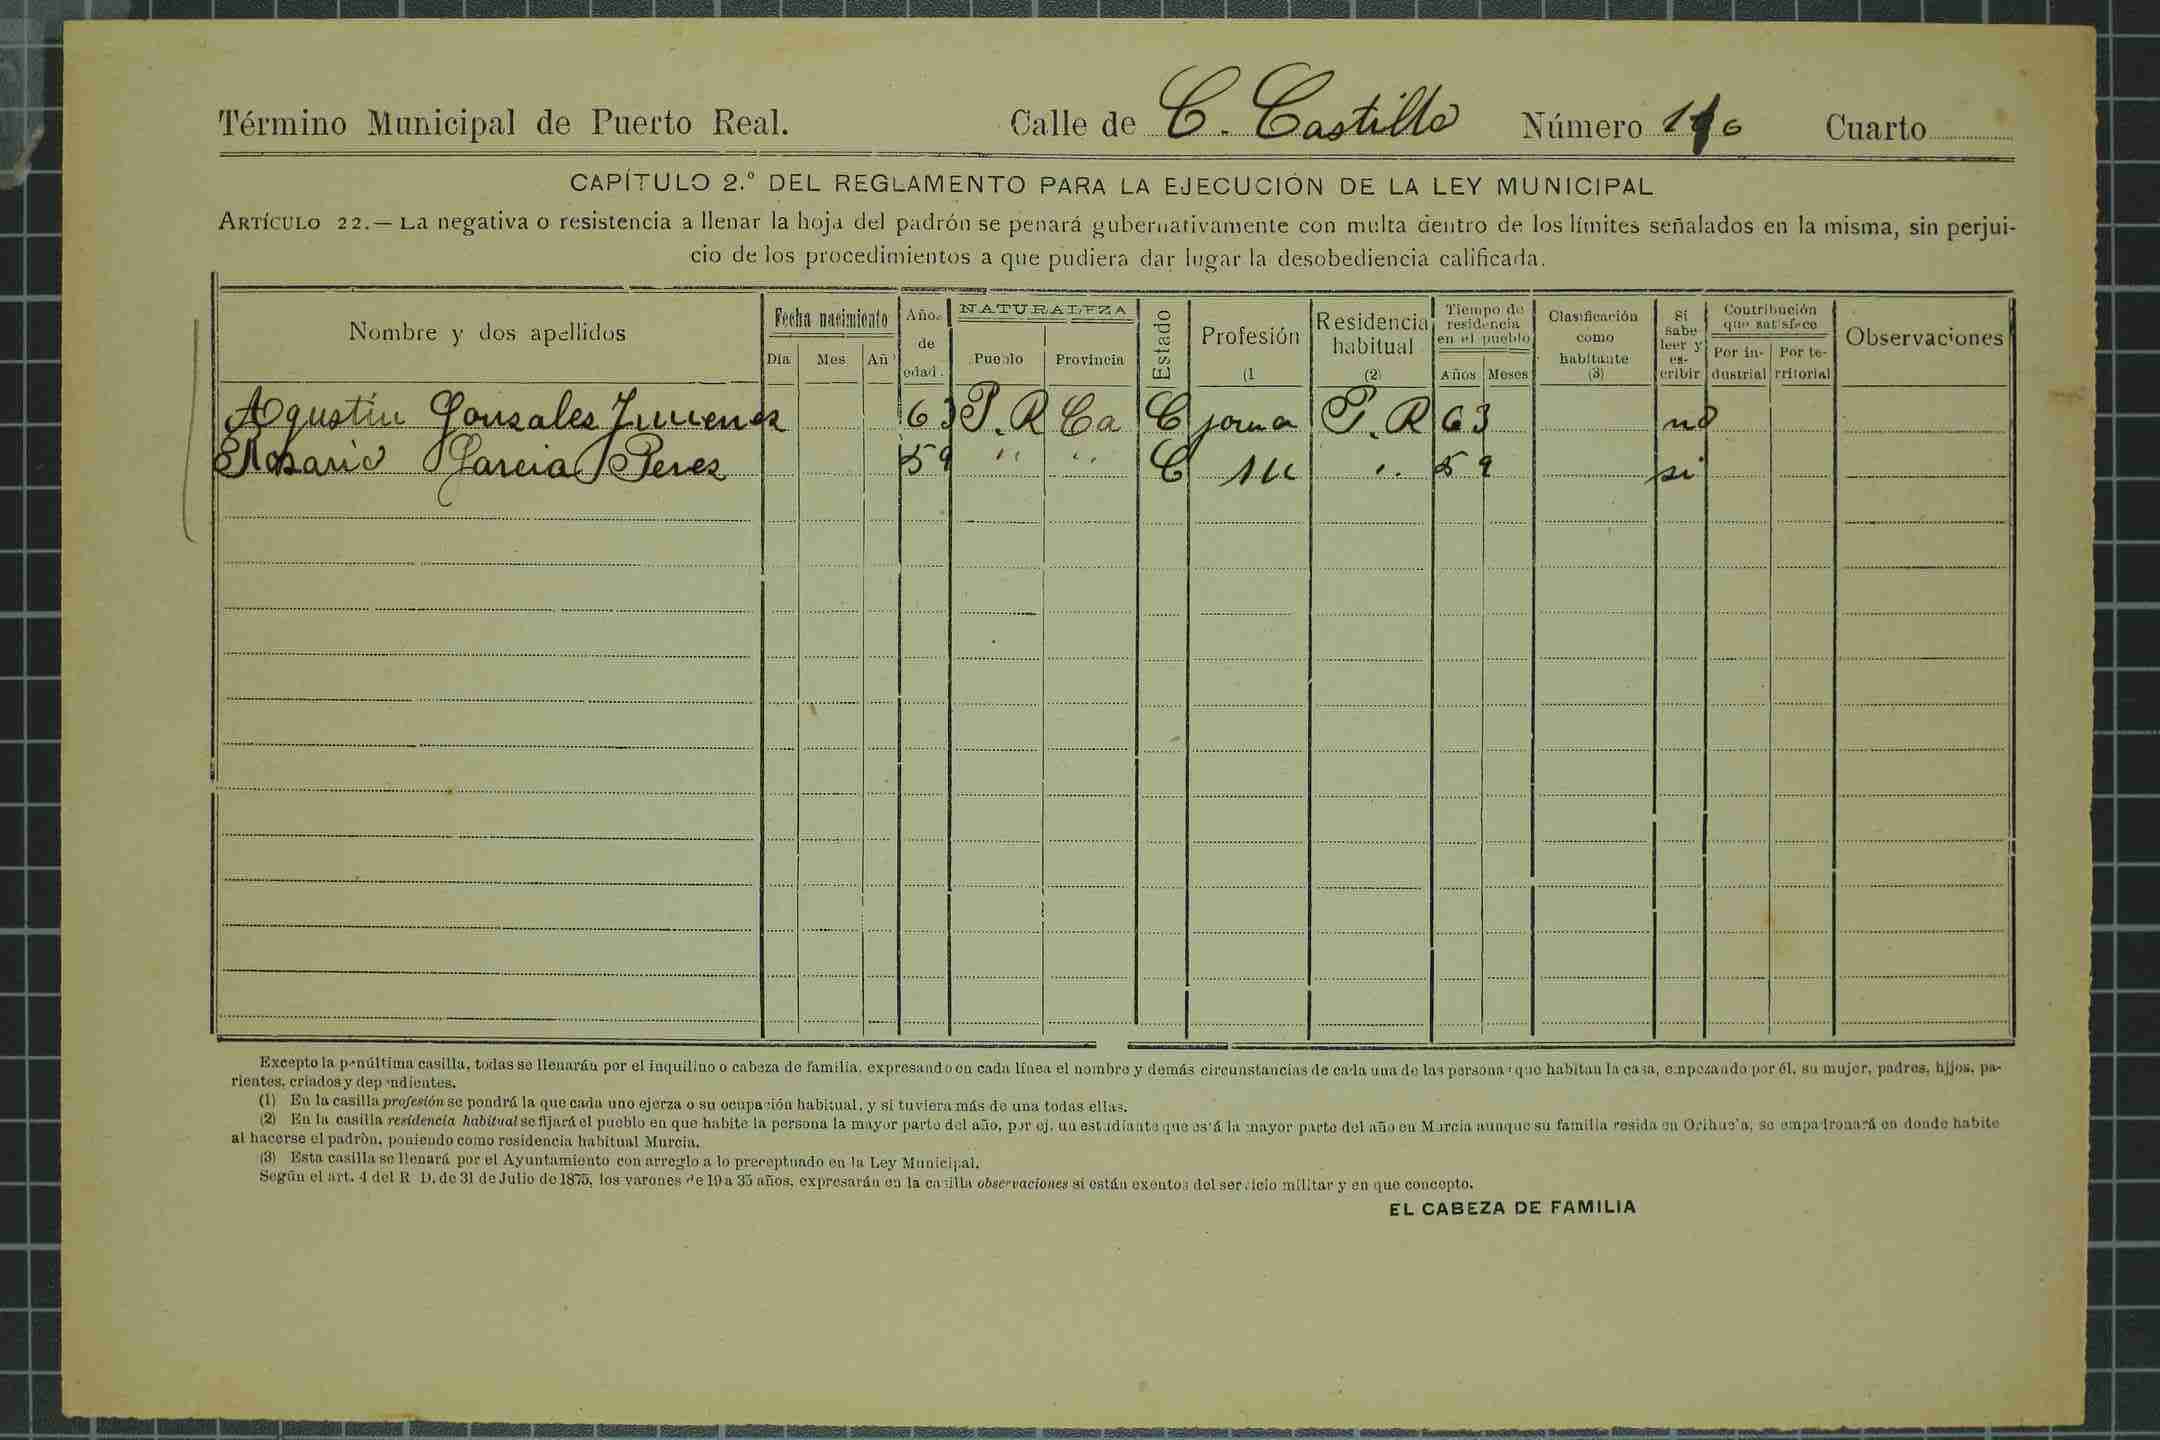 Término Municipal de Puerto Real. Calle de C. Castillo Número Cuarto
CAPÍTULO 2.º DEL REGLAMENTO PARA LA EJECUCIÓN DE LA LEY MUNICIPAL
ARTÍCULO 22.— La negativa o resistencia a llenar la hoja del padrón se penará gubernativamente con multa dentro de los límites señalados en la misma, sin perjui-
cio de los procedimientos a que pudiera dar lugar la desobediencia calificada.
Nombre y dos apellidos Fecha nacimiento Día Mes Añ Años de edad. NATURALEZA Pueblo Provincia Estado Profesión (1 Residencia habitual (2) Tiempo de residencia en el pueblo Años Meses Clasificación como habitante (3) Si sabe leer y es- cribir Contribución que satisface Por in- dustrial Por te- rritorial Observaciones
Agustin Gonzales Jimenez 63 P. R Ca C jorna P. R 63 no
Rosario Garcia Perez 59 " " C su " 59 si
Excepto la penúltima casilla, todas se llenarán por el inquilino o cabeza de familia, expresando en cada línea el nombre y demás circunstancias de cada una de las personas que habitan la casa, empezando por él, su mujer, padres, hijos, pa-
rientes, criados y dependientes.
(1) En la casilla profesión se pondrá la que cada uno ejerza o su ocupación habitual, y si tuviera más de una todas ellas.
(2) En la casilla residencia habitual se fijará el pueblo en que habite la persona la mayor parte del año, por ej. un estudiante que está la mayor parte del año en Murcia aunque su familia resida en Orihuela, se empadronará en donde habite
al hacerse el padrón, poniendo como residencia habitual Murcia.
(3) Esta casilla se llenará por el Ayuntamiento con arreglo a lo preceptuado en la Ley Municipal.
Según el art. 4 del R D. de 31 de Julio de 1875, los varones de 19 a 35 años, expresarán en la casilla observaciones si están exentos del servicio militar y en que concepto.
EL CABEZA DE FAMILIA